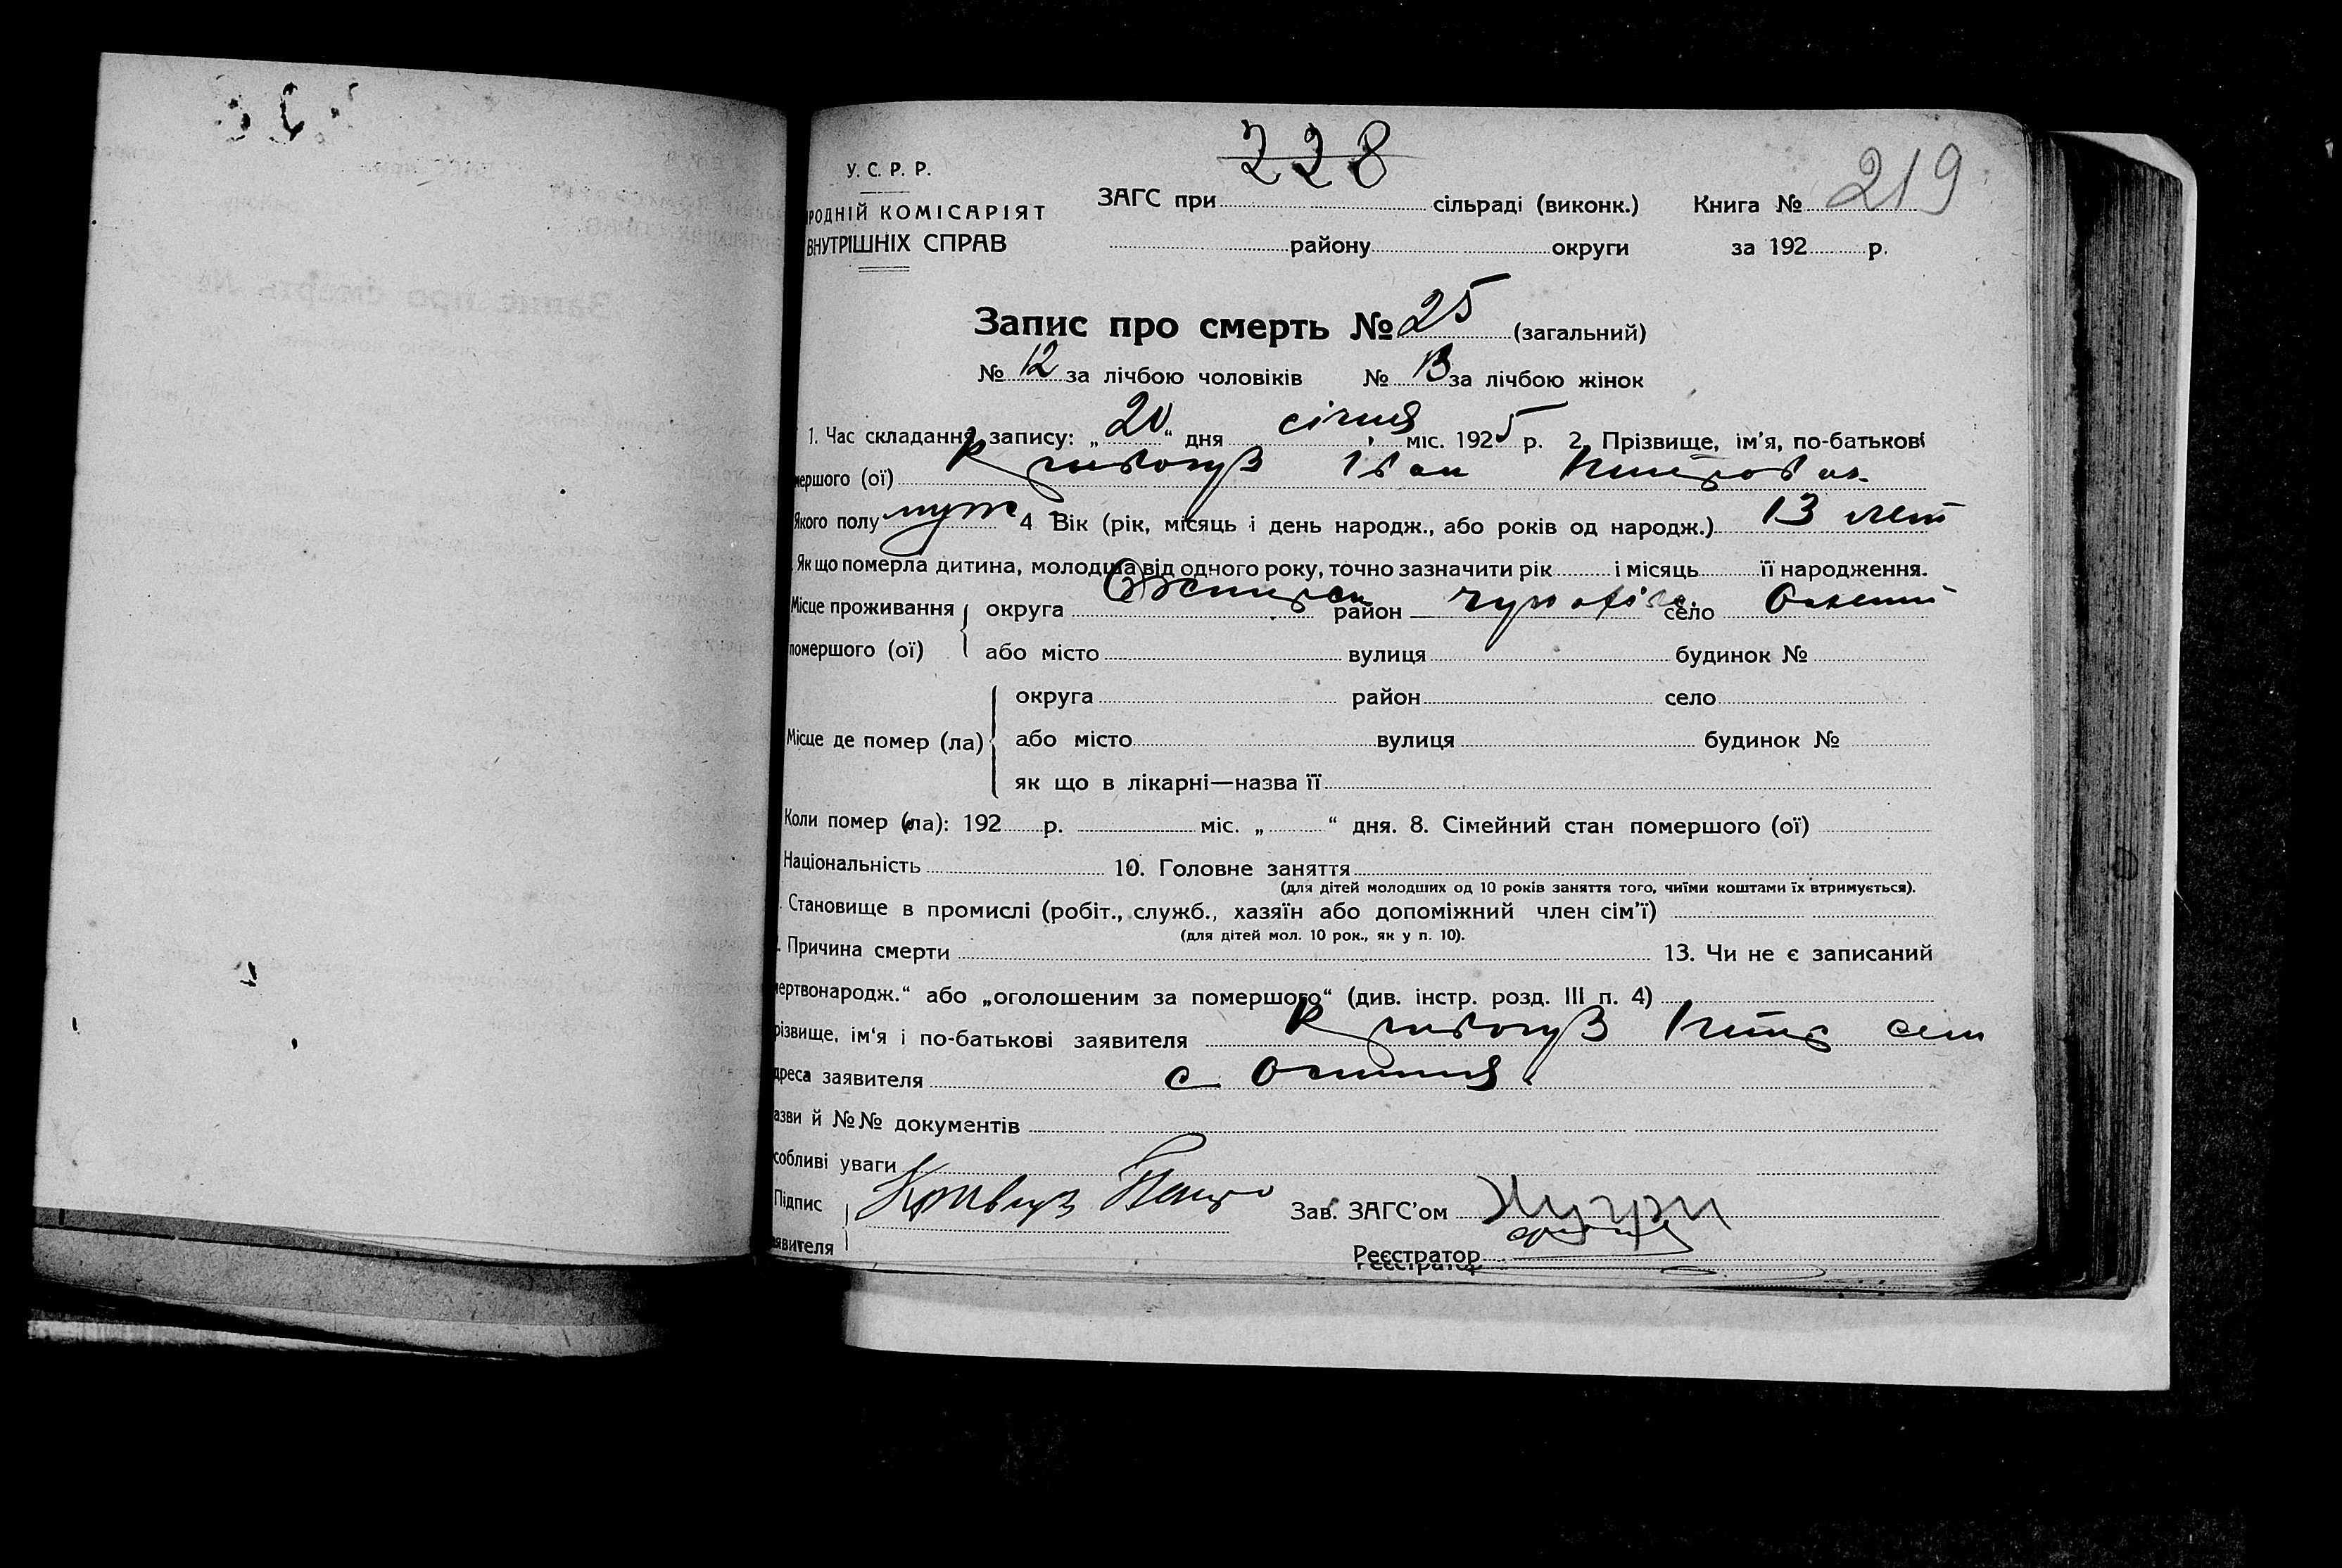 228
219
У. С. Р. Р.
РОДНІЙ КОМІСАРІЯТ
ВНУТРІШНІХ СПРАВ
ЗАГС при сільраді (виконк.) Книга №
району округи за 192 р.
Запис про смерть № 25 (загальний)
№ 12 за лічбою чоловіків № 13 за лічбою жінок
1. Час складання запису: „20“ дня січня міс. 1925 р. 2. Прізвище, ім'я, по-батькові
мершого (ої) Кривогуз Іван
Якого полу муж 4 Вік (рік, місяць і день народж., або років од народж.) 13 лет
Як що померла дитина, молодша від одного року, точно зазначити рік і місяць її народження.
Місце проживання округа район село
помершого (ої) або місто вулиця будинок №
округа район село
Місце де помер (ла) або місто вулиця будинок №
як що в лікарні—назва її
Коли помер (ла): 192 р. міс. „ “ дня. 8. Сімейний стан помершого (ої)
Національність 10. Головне заняття
(для дітей молодших од 10 років заняття того, чиїми коштами їх втримується).
Становище в промислі (робіт., служб., хазяїн або допоміжний член сім'ї)
(для дітей мол. 10 рок., як у п. 10).
Причина смерти 13. Чи не є записаний
мертвонародж.“ або „оголошеним за помершого“ (див. інстр. розд. III п. 4)
різвище, ім'я і по-батькові заявителя Кривогуз
дреса заявителя с
азви й №№ документів
собливі уваги
Підпис Зав. ЗАГС'ом
явителя Реєстратор